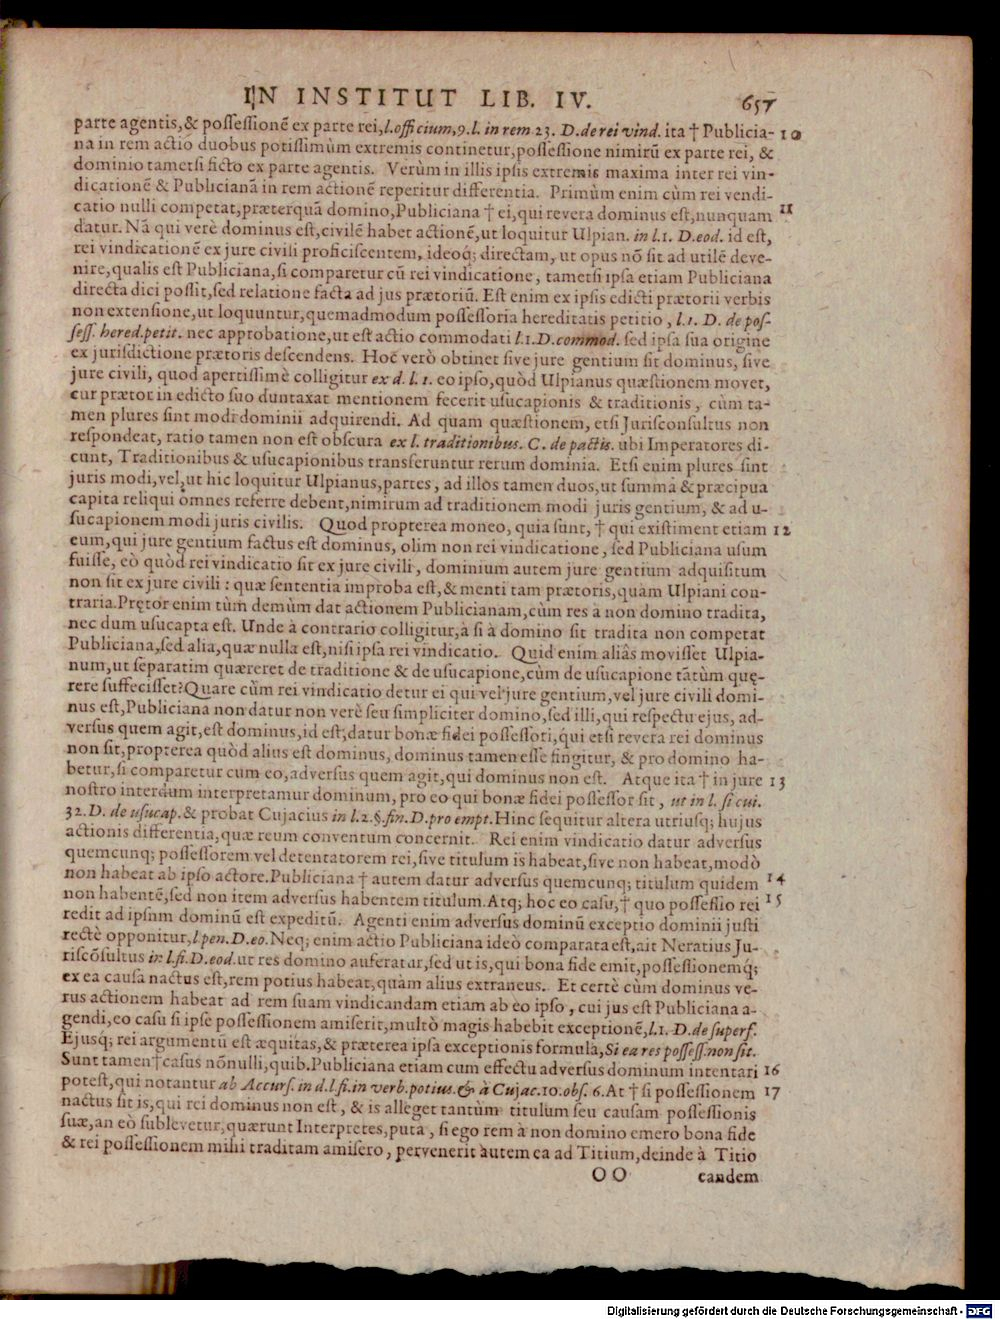 IN INSTITUT LIB. IV. 657
parte agentis,& possessionē ex parte rei,l.officium,9.l. in rem 23. D.de rei vind. ita † Publicia- 10
na in rem actio duobus potissimùm extremis continetur,possessione nimirū ex parte rei, &
dominio tametsi ficto ex parte agentis. Verùm in illis ipsis extremis maxima inter rei vin-
dicationē & Publicianā in rem actionē reperitur differentia. Primùm enim cùm rei vendi-
catio nulli competat,præterquā domino,Publiciana † ei,qui revera dominus est,nunquam 11
datur. Nā qui verè dominus est,civilē habet actionē,ut loquitur Ulpian. in l.1. D.eod. id est,
rei vindicationē ex jure civili proficiscentem, ideoq; directam, ut opus nō sit ad utilē deve-
nire,qualis est Publiciana,si comparetur cū rei vindicatione, tametsi ipsa etiam Publiciana
directa dici possit,sed relatione facta ad jus prætoriū. Est enim ex ipsis edicti prætorii verbis
non extensione,ut loquuntur,quemadmodum possessoria hereditatis petitio, l.1. D. de pos-
sess. hered.petit. nec approbatione,ut est actio commodati l.1.D.commod. sed ipsa sua origine
ex jurisdictione prætoris descendens. Hoc verò obtinet sive jure gentium sit dominus, sive
jure civili, quod apertissimè colligitur ex d. l. 1. eo ipso,quòd Ulpianus quæstionem movet,
cur prætor in edicto suo duntaxat mentionem fecerit usucapionis & traditionis, cùm ta-
men plures sint modi dominii adquirendi. Ad quam quæstionem, etsi Jurisconsultus non
respondeat, ratio tamen non est obscura ex l. traditionibus. C. de pactis. ubi Imperatores di-
cunt, Traditionibus & usucapionibus transferuntur rerum dominia. Etsi enim plures sint
juris modi,vel,ut hic loquitur Ulpianus,partes, ad illos tamen duos,ut summa & præcipua
capita reliqui omnes referre debent,nimirum ad traditionem modi juris gentium, & ad u-
sucapionem modi juris civilis. Quod propterea moneo, quia sunt, † qui existiment etiam 12
eum,qui jure gentium factus est dominus, olim non rei vindicatione, sed Publiciana usum
fuisse, eò quòd rei vindicatio sit ex jure civili, dominium autem jure gentium adquisitum
non sit ex jure civili : quæ sententia improba est,& menti tam prætoris,quàm Ulpiani con-
traria.Prętor enim tùm demùm dat actionem Publicianam,cùm res à non domino tradita,
nec dum usucapta est. Unde à contrario colligitur,à si à domino sit tradita non competat
Publiciana,sed alia,quæ nulla est,nisi ipsa rei vindicatio. Quid enim aliâs movisset Ulpia-
num,ut separatim quæreret de traditione & de usucapione,cùm de usucapione tātùm quę-
rere suffecisset?Quare cùm rei vindicatio detur ei qui vel jure gentium,vel jure civili domi-
nus est,Publiciana non datur non verè seu simpliciter domino,sed illi,qui respectu ejus, ad-
versus quem agit,est dominus,id est,datur bonæ fidei possessori,qui etsi revera rei dominus
non sit,propterea quòd alius est dominus, dominus tamen esse fingitur, & pro domino ha-
betur,si comparetur cum eo,adversus quem agit,qui dominus non est. Atque ita † in jure 13
nostro interdum interpretamur dominum, pro eo qui bonæ fidei possessor sit, ut in l. si cui.
32. D. de usucap.& probat Cujacius in l.2.§.fin.D.pro empt.Hinc sequitur altera utriusq; hujus
actionis differentia,quæ reum conventum concernit. Rei enim vindicatio datur adversus
quemcunq; possessorem vel detentatorem rei,sive titulum is habeat,sive non habeat,modò
non habeat ab ipso actore.Publiciana † autem datur adversus quemcunq; titulum quidem 14
non habentē,sed non item adversus habentem titulum.Atq; hoc eo casu,† quo possessio rei 15
redit ad ipsum dominū est expeditū. Agenti enim adversus dominū exceptio dominii justi
rectè opponitur,l.pen.D.eo.Neq; enim actio Publiciana ideò comparata est,ait Neratius Ju-
riscōsultus in l.fi.D.eod.ut res domino auferatur,sed ut is,qui bona fide emit,possessionemq́;
ex ea causa nactus est,rem potius habeat,quàm alius extraneus. Et certè cùm dominus ve-
rus actionem habeat ad rem suam vindicandam etiam ab eo ipso, cui jus est Publiciana a-
gendi,eo casu si ipse possessionem amiserit,multò magis habebit exceptionē,l.1. D.de superf.
Ejusq; rei argumentū est æquitas,& præterea ipsa exceptionis formula,Si ea res possess.non sit.
Sunt tamen † casus nōnulli,quib.Publiciana etiam cum effectu adversus dominum intentari 16
potest,qui notantur ab Accurs. in d.l.fi.in verb.potius.& à Cujac.10.obs. 6.At † si possessionem 17
nactus sit is,qui rei dominus non est, & is alleget tantùm titulum seu causam possessionis
suæ,an eò sublevetur,quærunt Interpretes,puta, si ego rem à non domino emero bona fide
& rei possessionem mihi traditam amisero, pervenerit autem ea ad Titium,deinde à Titio
OO eandem
Digitalisierung gefördert durch die Deutsche Forschungsgemeinschaft - DFG